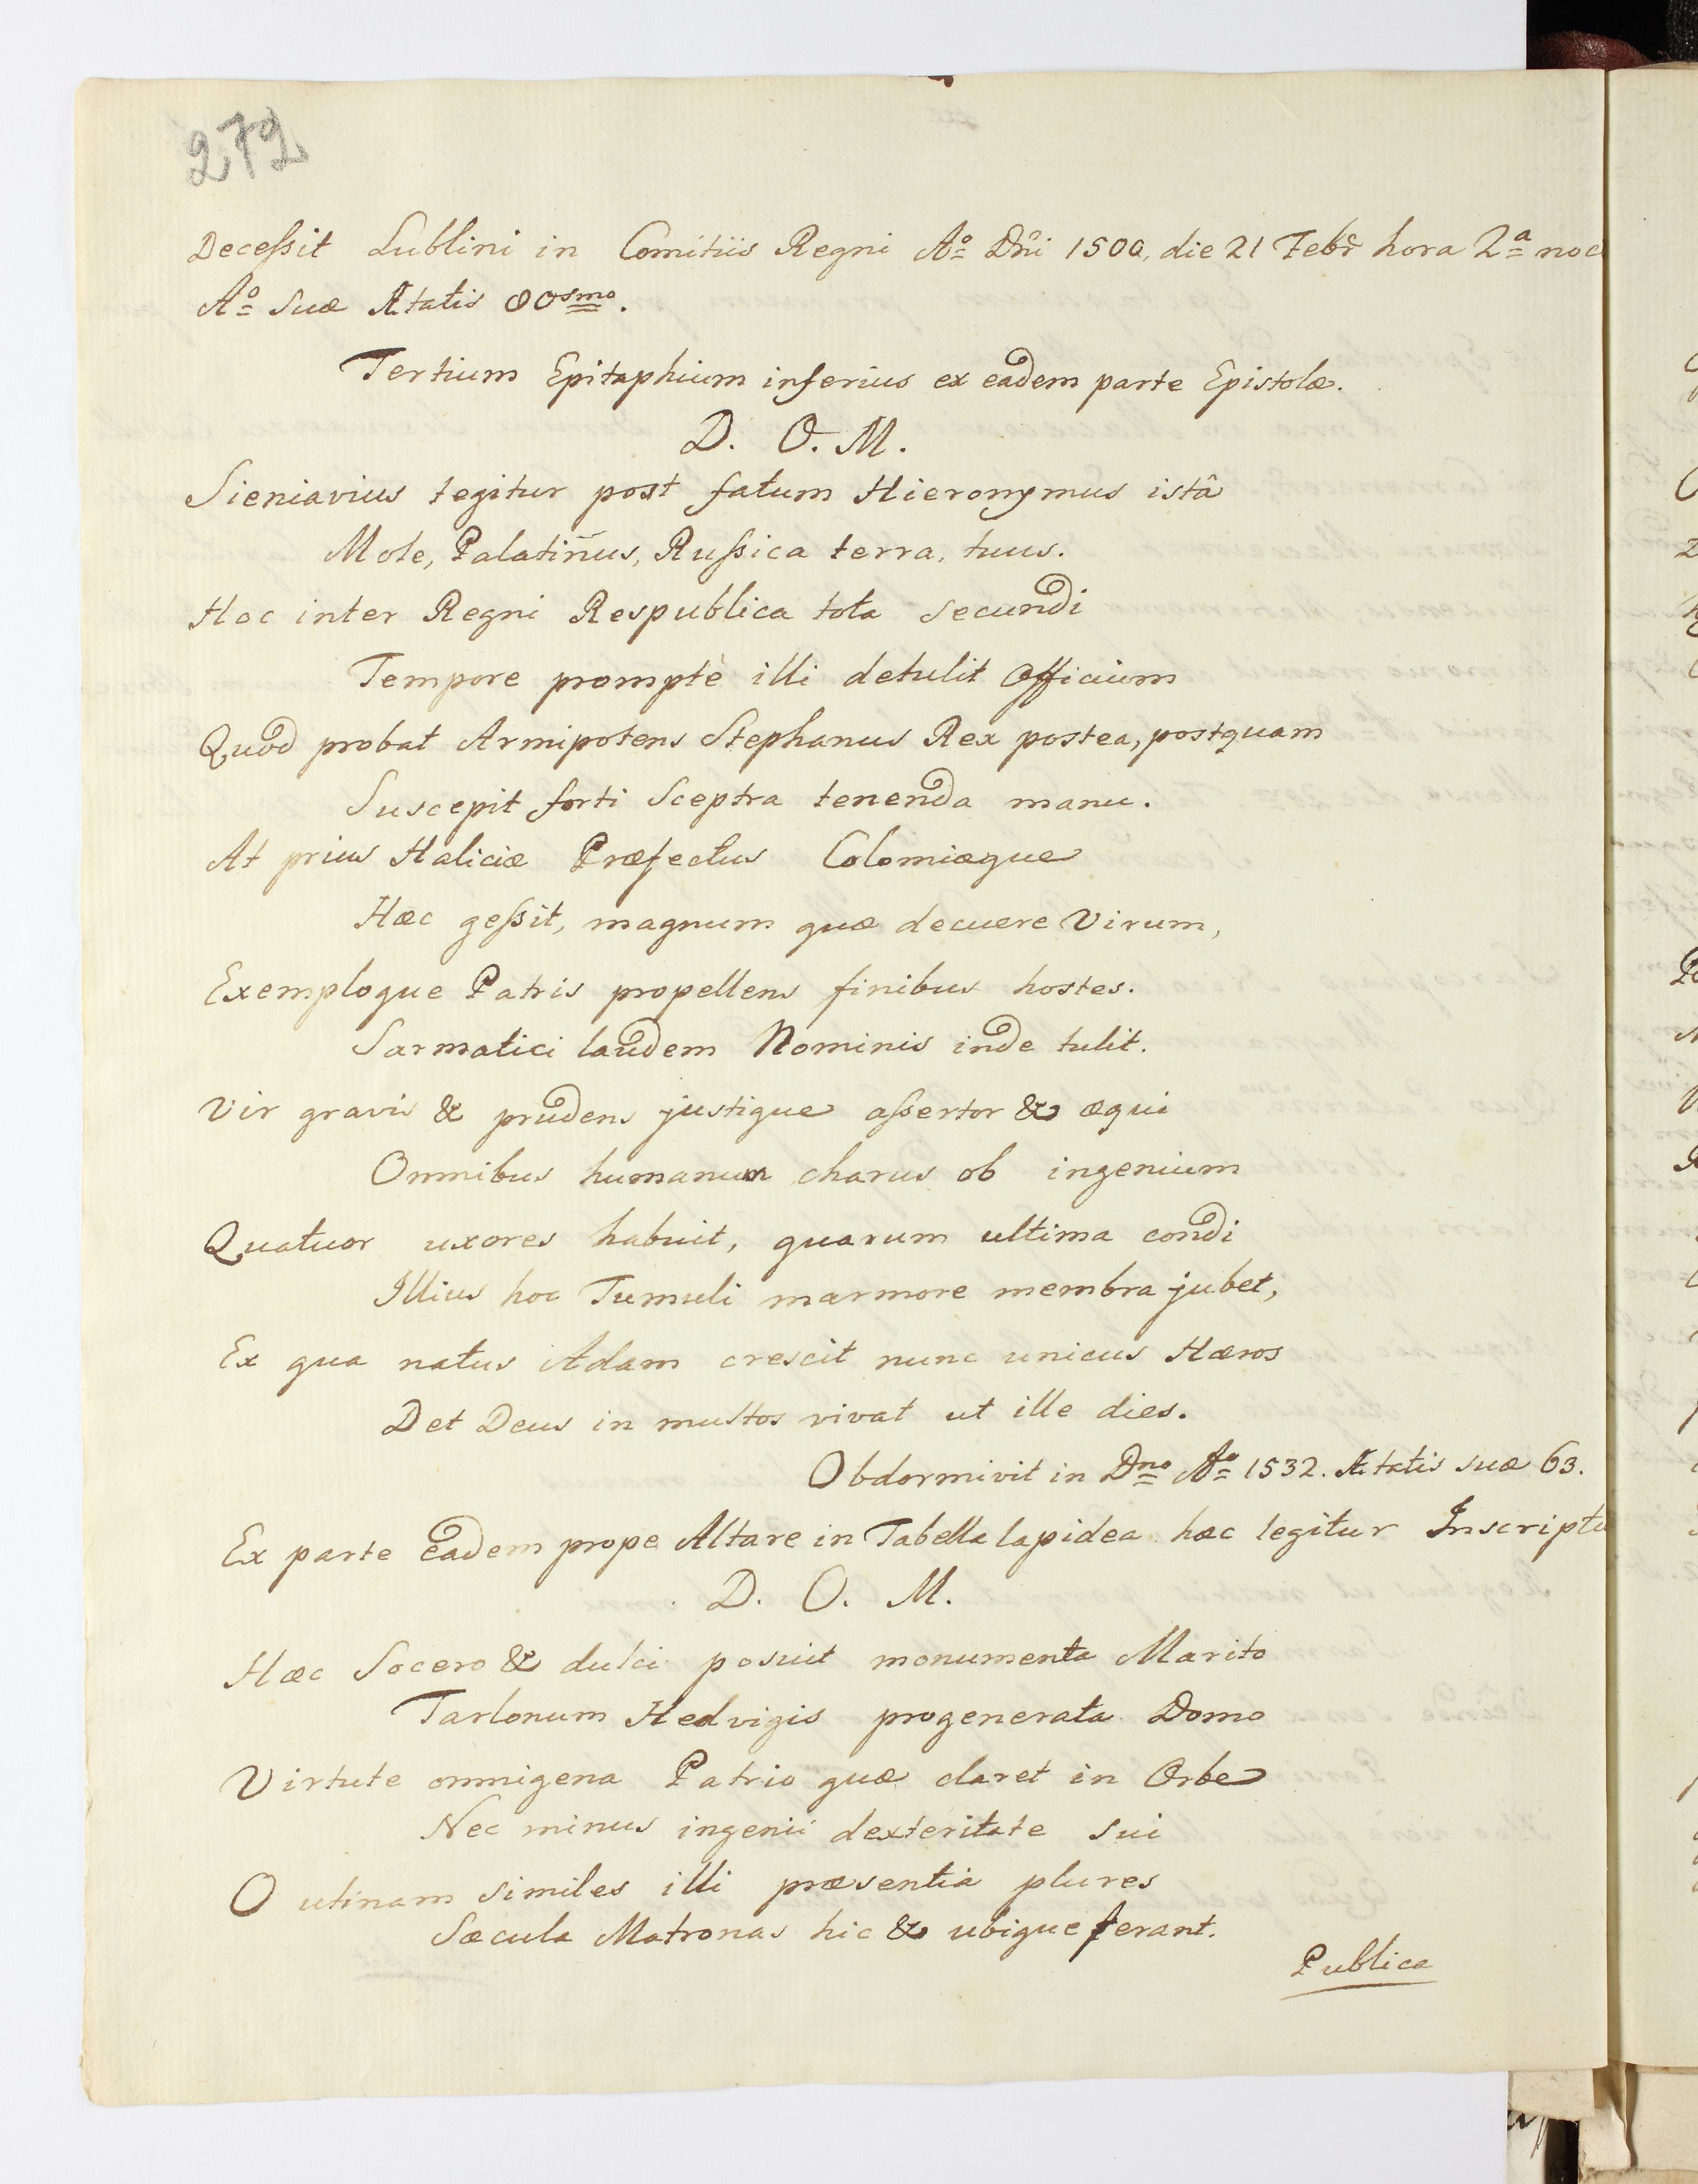 272
Decessit Lublini in Comitiis Regni Aº Dñi 1500, die 21 Febr hora 2ª noc
Aº Suæ Ætatis 00smo.
Tertium Epitaphium inferius ex eadem parte Epistolæ.
D. O. M.
Sieniavius tegitur post fatum Hieronymus istâ
Mole, Palatiñus, Russica terra, tuus.
Hoc inter Regni Respublica tota secundi
Tempore promptè illi detulit Officium
Quod probat Armipotens Stephanus Rex postea, postquam
Suscepit forti Sceptra tenenda manu.
At prius Haliciæ Præfectus Colomiæque
Hæc gessit, magnum quæ decuere Virum,
Exemploque Patris propellens finibus hostes.
Sarmatici laudem Nominis inde tulit.
Vir gravis & prudens justique assertor & æqui
Omnibus humanum charus ob ingenium
Quatuor uxores habuit, quarum ultima condi
Illius hoc Tumuli marmore membra jubet,
Ex qua natus Adam crescit nunc unicus Hæros
Det Deus in multos vivat ut ille dies.
Obdormivit in Dno Aº 1532. Ætatis suæ 63.
Ex parte eadem prope Altare in Tabella lapidea hæc legitur Inscriptu
D. O. M.
Hæc Socero & dulci posuit monumenta Marito
Tarlonum Hedvigis progenerata Domo
Virtute omnigena Patrio quæ claret in Orbe
Nec minus ingenii dexteritate sui
O utinam similes illi præsentia plures
Sæcula Matronas hic & ubique ferant.
Publica